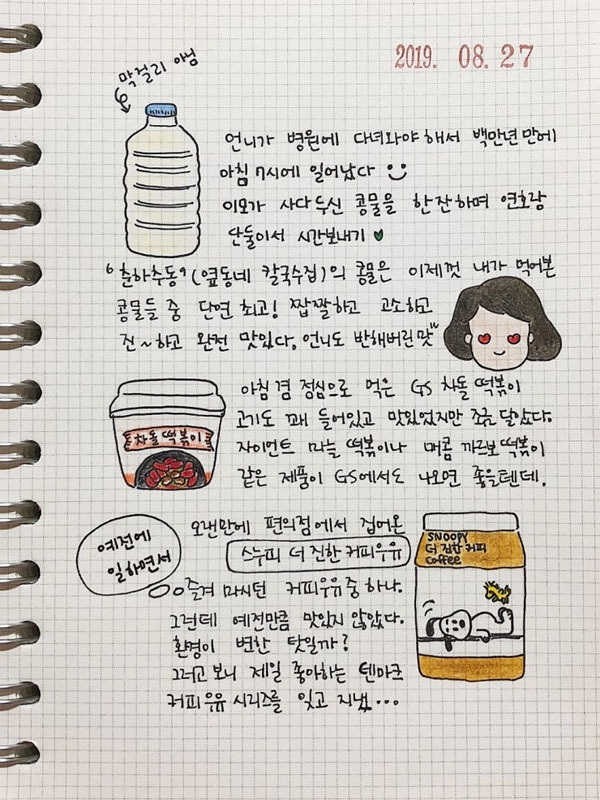 2019. 08. 27
막걸리 아님
언니가 병원에 다녀와야해서 백만년만에
아침 7시에 일어났다
이모가 사다두신 콩물을 한잔하며 연호랑
단둘이서 시간보내기
"춘하추동"(옆동네 칼국수집)의 콩물은 이제껏 내가 먹어본
콩물들 중 단연 최고! 짭짤하고 고소하고
진~하고 완전 맛있다. 언니도 반해버린 맛"
아침 겸 점심으로 먹은 GS 차돌 떡볶이
고기도 꽤 들어있고 맛있었지만 조금 달았다.
자이언트 마늘 떡볶이나 매콤 까르보 떡볶이
같은 제품이 GS에서도 나오면 좋을텐데.
차돌떡볶이
오랜만에 편의점에서 집어온
스누피 더 진한 커피우유
예전에
일하면서
즐겨 마시던 커피우유 중 하나.
그런데 예전만큼 맛있지 않았다.
환경이 변한 탓일까?
그러고 보니 제일 좋아하는 덴마크
커피우유 시리즈를 잊고 지냈...
SNOOPY
더 진한 커피
Coffee